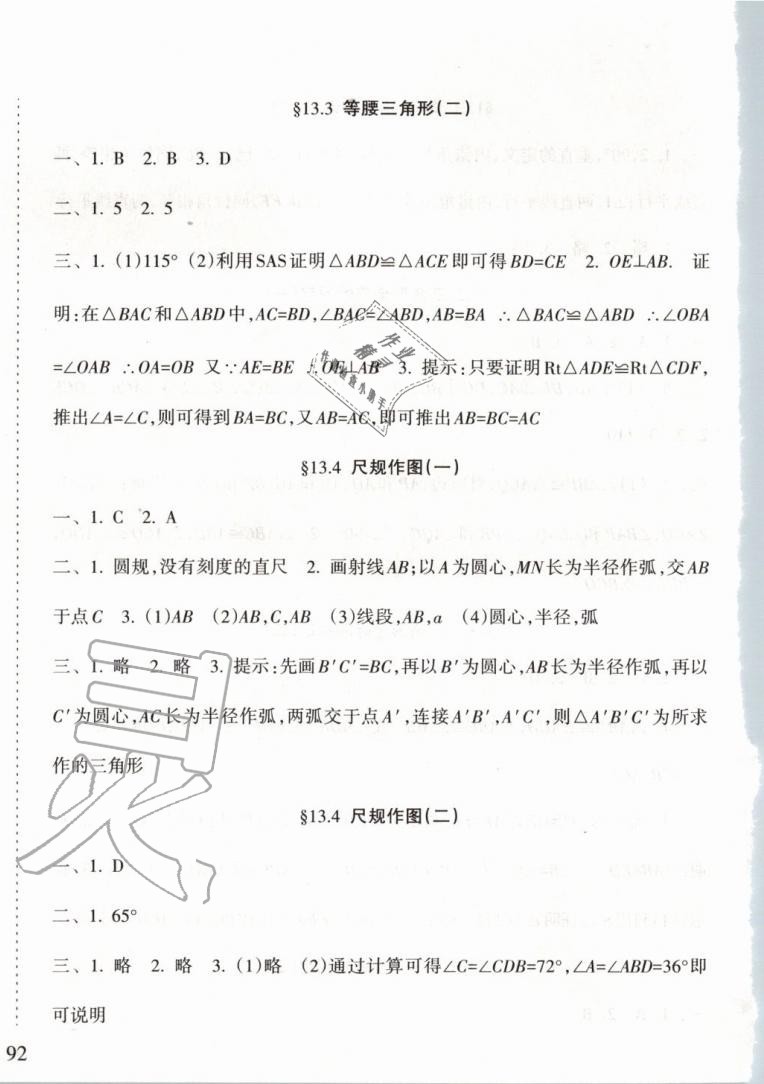 §13.3 等腰三角形(二)
一、1. B 2. B 3. D
二、1. 5 2. 5
三、1. (1)115° (2)利用SAS证明△ABD≌△ACE即可得BD=CE 2. OE⊥AB. 证
明:在△BAC和△ABD中,AC=BD,∠BAC=∠ABD,AB=BA ∴△BAC≌△ABD ∴∠OBA
=∠OAB ∴OA=OB 又∵AE=BE ∴OE⊥AB 3. 提示:只要证明Rt△ADE≌Rt△CDF,
推出∠A=∠C,则可得到BA=BC,又AB=AC,即可推出AB=BC=AC
作业
精灵
§13.4 尺规作图(一)
一、1. C 2. A
二、1. 圆规,没有刻度的直尺 2. 画射线AB;以A为圆心,MN长为半径作弧,交AB
于点C 3. (1)AB (2)AB,C,AB (3)线段,AB,a (4)圆心,半径,弧
三、1. 略 2. 略 3. 提示:先画B′C′=BC,再以B′为圆心,AB长为半径作弧,再以
C′为圆心,AC长为半径作弧,两弧交于点A′,连接A′B′,A′C′,则△A′B′C′为所求
作的三角形
§13.4 尺规作图(二)
一、1. D
二、1. 65°
三、1. 略 2. 略 3. (1)略 (2)通过计算可得∠C=∠CDB=72°,∠A=∠ABD=36°即
可说明
92